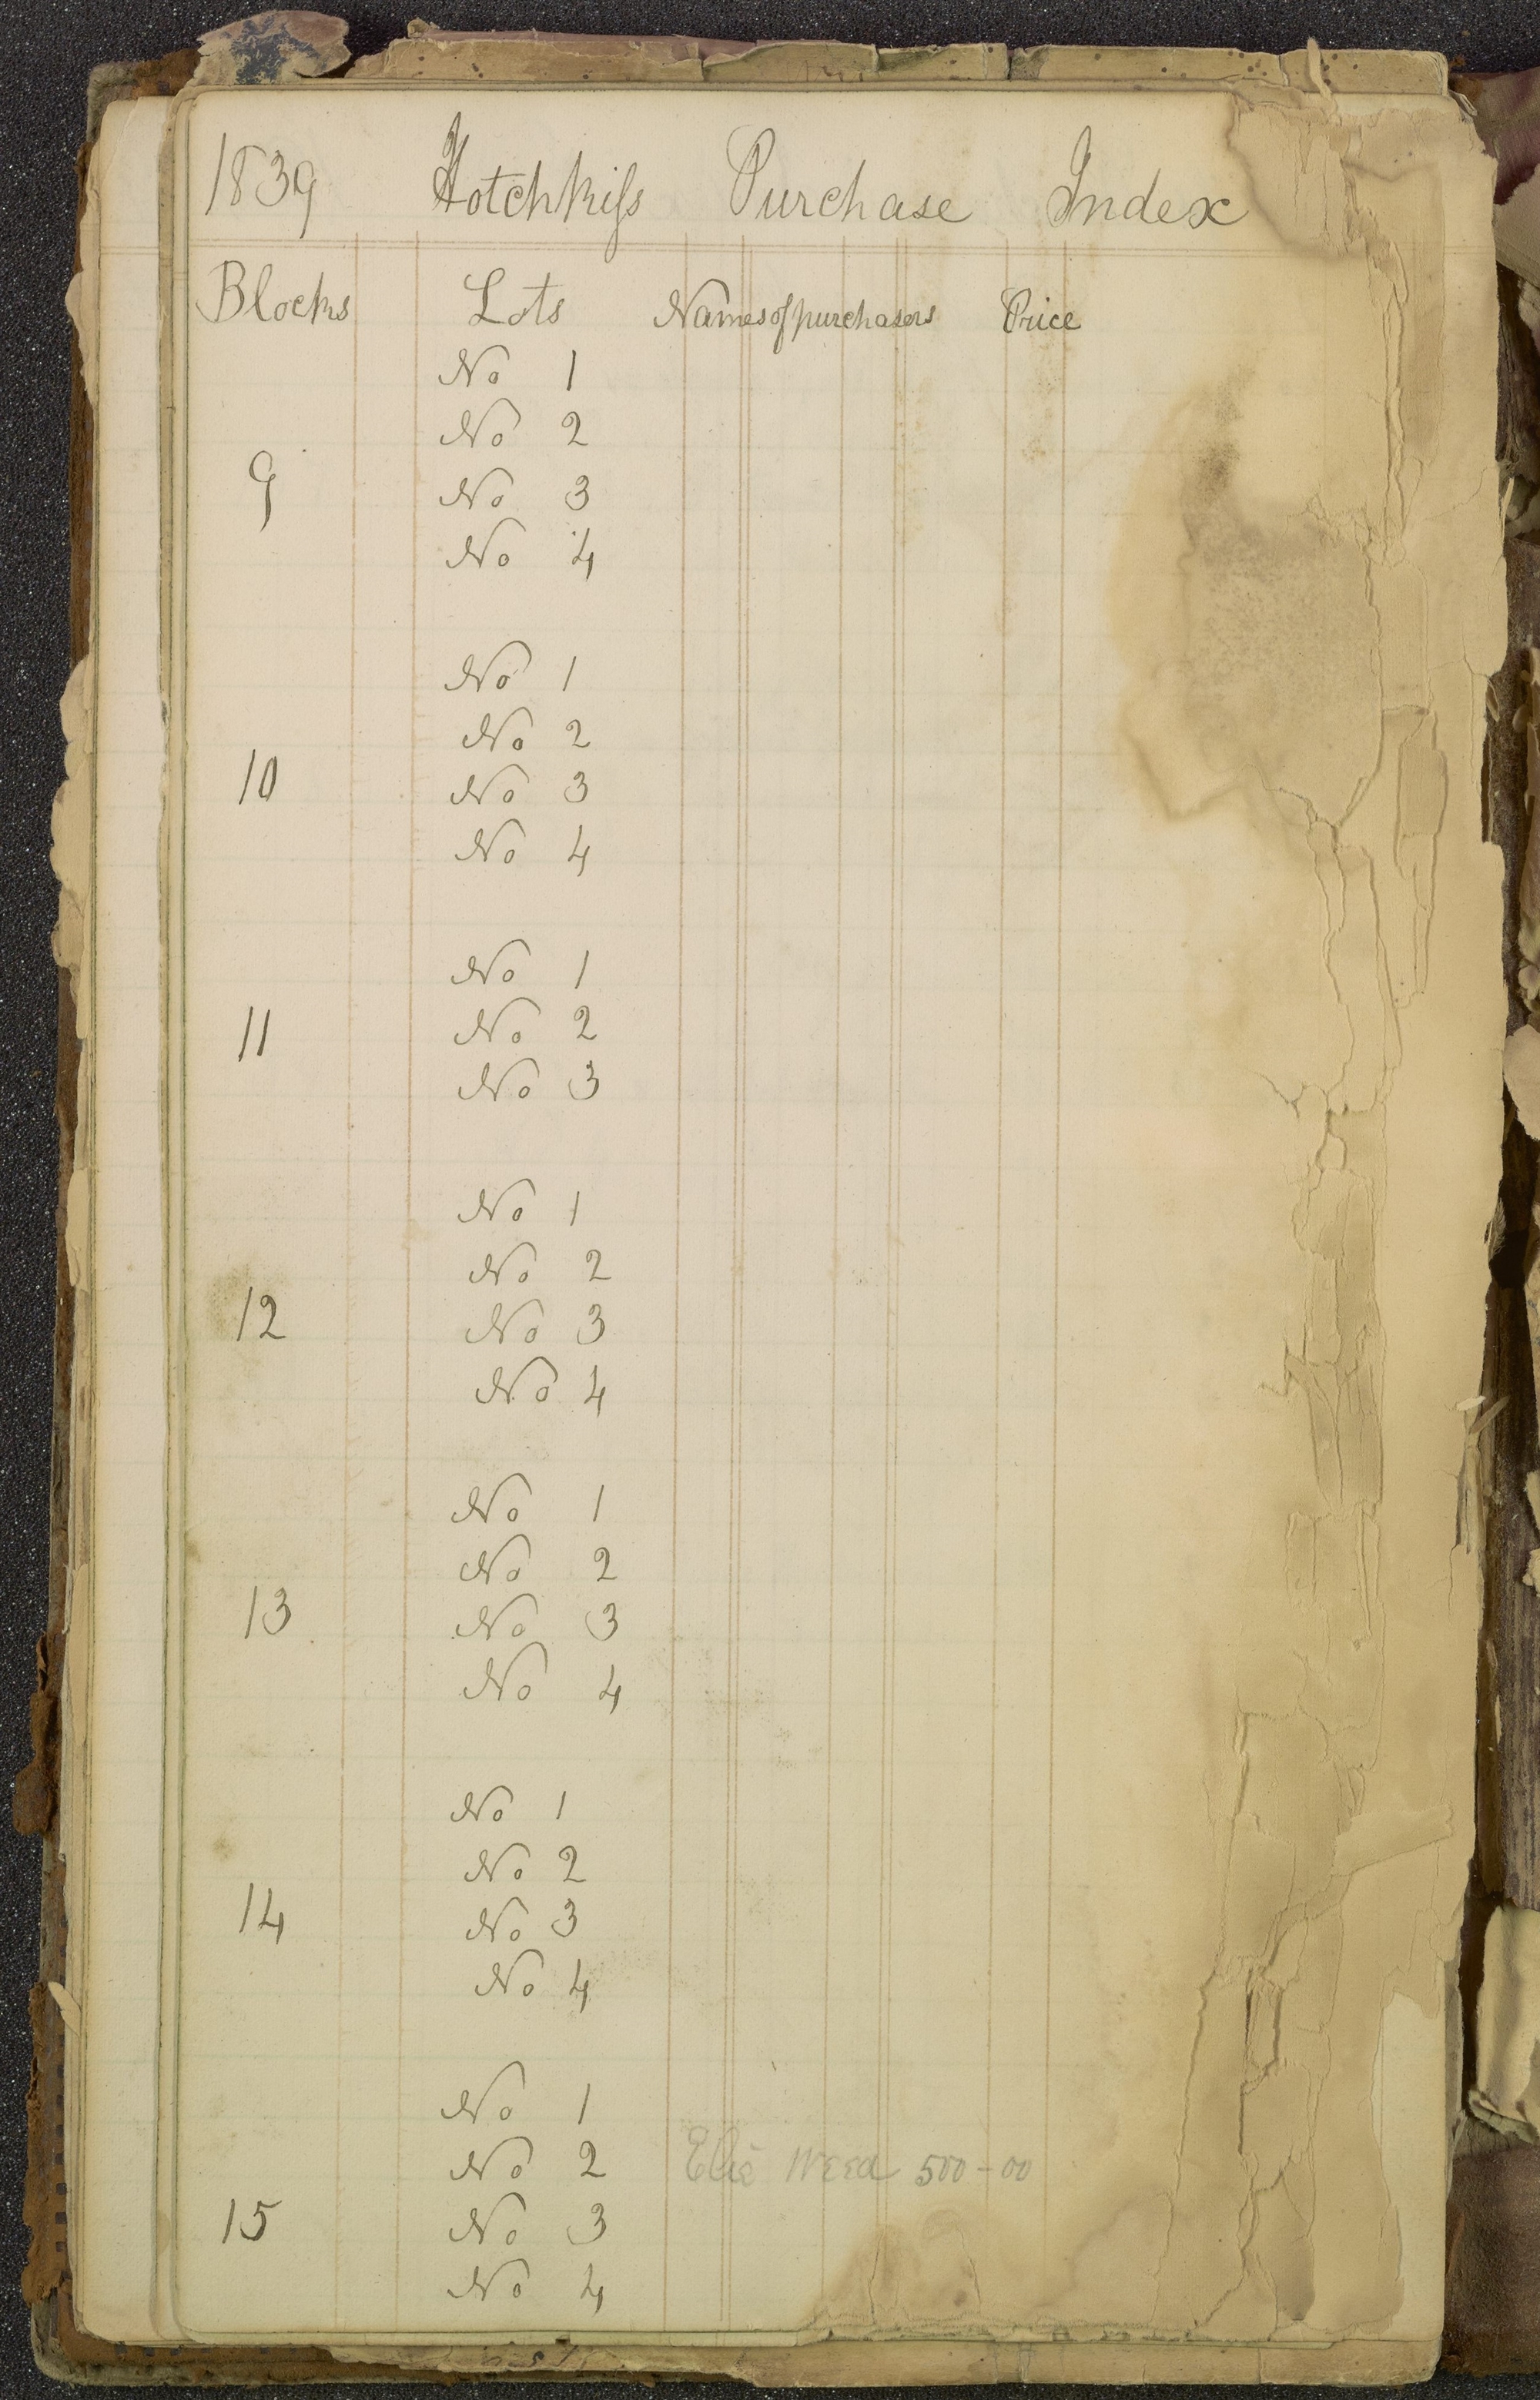 1839 Hotchkiſs Purchase Index
Blocks Lots Names of purchasers Price
No 1
No 2
9 No 3
No 4
No 1
No 2
10 No 3
No 4
No 1
11 No 2
No 3
No 1
No 2
12 No 3
No 4
No 1
No 2
13 No 3
No 4
No 1
No 2
14 No 3
No 4
No 1
No 2 Weed 500-00
15 No 3
No 4